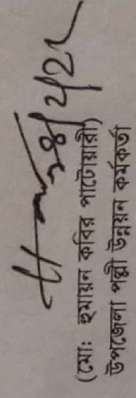 ২৪/২/২১
(মো: হুমায়ন কবির পাটোয়ারী)
উপজেলা পল্লী উন্নয়ন কর্মকর্তা